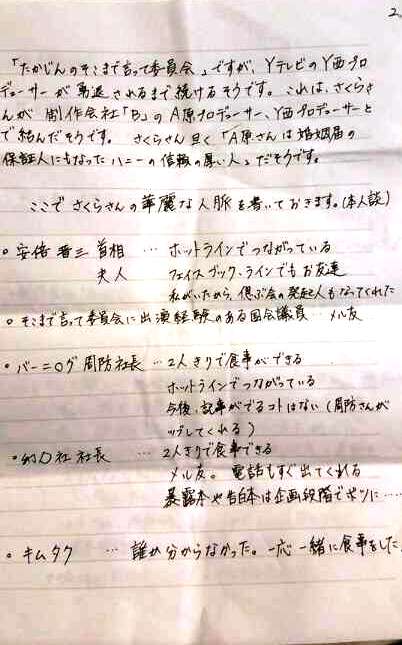 2
「たかじんのそこまで言って委員会」ですが、YテレビのY西プロ
デューサーが勇退されるまで続けるそうです。これは、さくらさ
んが制作会社「B」のA原プロデューサー、Y西プロデューサーと
で結んだそうです。さくらさん曰く「A原さんは婚姻届の
保証人にもなったハニーの信頼の厚い人」だそうです。
ここでさくらさんの華麗な人脈を書いておきます。(本人談)
○安倍晋三首相 … ホットラインでつながっている
夫人 フェイスブック、ラインでもお友達
私がいたから、偲ぶ会の発起人もなってくれた
○そこまで言って委員会に出演経験のある国会議員…メル友
○バーニング周防社長…2人きりで食事ができる
ホットラインでつながっている
今後、記事がでるコトはない(周防さんが
ツブしてくれる)
○幻冬社社長 … 2人きりで食事できる
メル友。電話もすぐ出てくれる
暴露本や告白本は企画段階でボツに……
○キムタク … 誰か分からなかった。一応一緒に食事をした